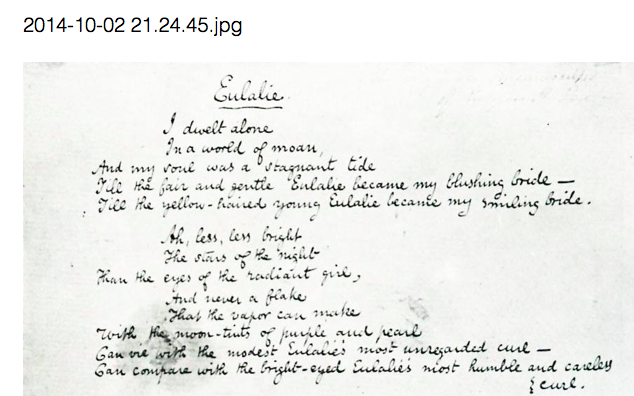 2014-10-02 21.24.45.jpg
Eulalie.
I dwelt alone
In a world of moan,
And my soul was a stagnant tide
Till the fair and gentle Eulalie became my blushing bride —
Till the yellow-haired young Eulalie became my smiling bride.
Ah, less, less bright
The stars of the night
Than the eyes of the radiant girl,
And never a flake
That the vapor can make
With the moon-tints of purple and pearl
Can vie with the modest Eulalie's most unregarded curl —
Can compare with the bright-eyed Eulalie's most humble and careless
{curl.